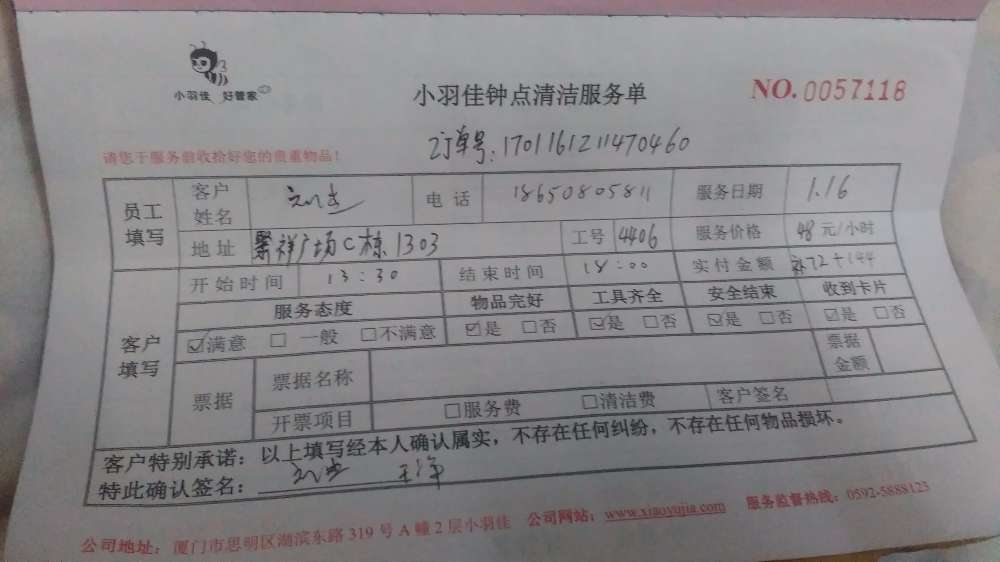 小羽佳 好管家
小羽佳钟点清洁服务单
NO. 0057118
订单号: 1701161211470460
请您于服务前收拾好您的贵重物品!
员工填写 客户姓名 电话 18650805811 服务日期 1.16
地址 聚祥广场C栋1303 工号 4406 服务价格 48元/小时
客户填写 开始时间 13:30 结束时间 18:00 实付金额 72+144
服务态度 物品完好 工具齐全 安全结束 收到卡片
☑满意 □一般 □不满意 ☑是 □否 ☑是 □否 ☑是 □否 ☑是 □否
票据 票据名称 票据金额
开票项目 □服务费 □清洁费 客户签名
客户特别承诺:以上填写经本人确认属实,不存在任何纠纷,不存在任何物品损坏。
特此确认签名:
公司地址: 厦门市思明区湖滨东路319号A幢2层小羽佳 公司网站: www.xiaoyujia.com 服务监督热线: 0592-5888123